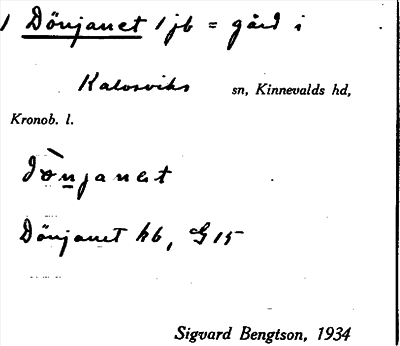 1 Dönjanet 1 jb = gård i
Kalvsviks sn, Kinnevalds hd,
Kronob. l.
Dönjanet kb, G 15
Sigvard Bengtson, 1934